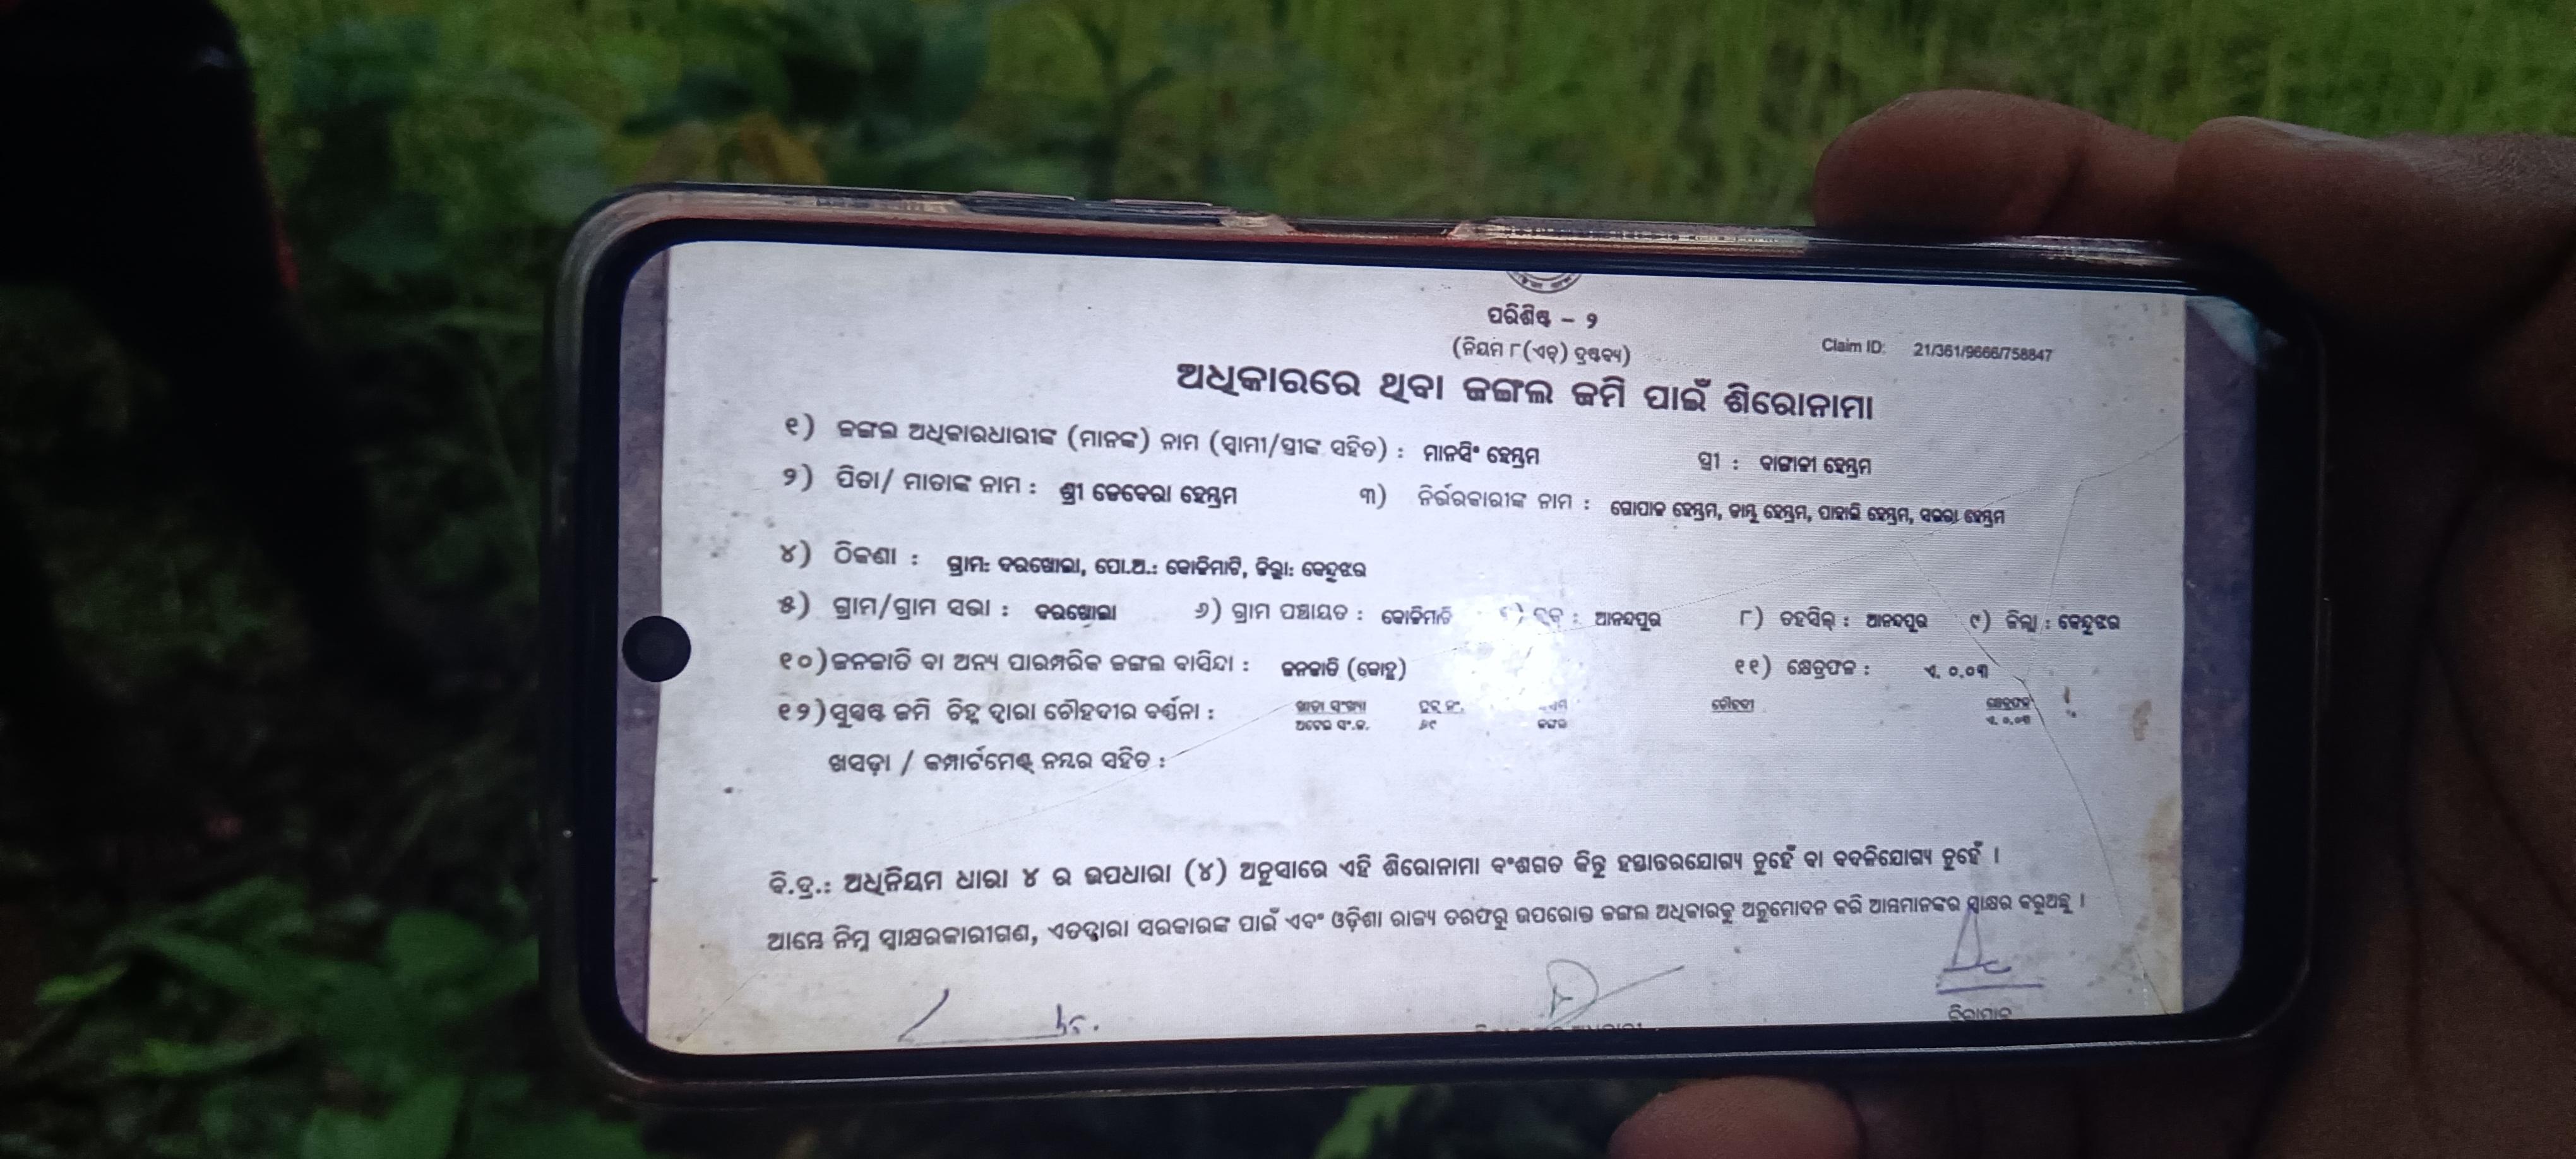 ପରିଶିଷ୍ଟ – ୨
(ନିୟମ ୮(ଏଚ୍) ଦ୍ରଷ୍ଟବ୍ୟ)
Claim ID: 21/361/9666/758847
ଅଧିକାରରେ ଥିବା ଜଙ୍ଗଲ ଜମି ପାଇଁ ଶିରୋନାମା
୧) ଜଙ୍ଗଲ ଅଧିକାରଧାରୀଙ୍କ (ମାନଙ୍କ) ନାମ (ସ୍ୱାମୀ/ସ୍ତ୍ରୀଙ୍କ ସହିତ) : ମାନସିଂ ହେମ୍ବ୍ରମ ସ୍ତ୍ରୀ : ବାଙ୍ଗାଳୀ ହେମ୍ବ୍ରମ
୨) ପିତା/ ମାତାଙ୍କ ନାମ : ଶ୍ରୀ ଡେବେରା ହେମ୍ବ୍ରମ ୩) ନିର୍ଭରକାରୀଙ୍କ ନାମ : ଗୋପାଳ ହେମ୍ବ୍ରମ, କାହ୍ନୁ ହେମ୍ବ୍ରମ, ପାହାଲି ହେମ୍ବ୍ରମ, ହେମ୍ବ୍ରମ
୪) ଠିକଣା : ଗ୍ରାମ: ଦରଖୋଲା, ପୋ.ଅ.: କୋଳିମାଟି, ଜିଲ୍ଲା: କେନ୍ଦୁଝର
୫) ଗ୍ରାମ/ଗ୍ରାମ ସଭା : ଦରଖୋଲା ୬) ଗ୍ରାମ ପଞ୍ଚାୟତ : କୋଳିମାଟି : ଆନନ୍ଦପୁର ୮) ତହସିଲ୍ : ଆନନ୍ଦପୁର ୯) ଜିଲ୍ଲା : କେନ୍ଦୁଝର
୧୦)ଜନଜାତି ବା ଅନ୍ୟ ପାରମ୍ପରିକ ଜଙ୍ଗଲ ବାସିନ୍ଦା : ଜନଜାତି (କୋହ୍ଲ) ୧୧) କ୍ଷେତ୍ରଫଳ : ଏ. ୦.୦୩
୧୨)ସୁସ୍ପଷ୍ଟ ଜମି ଚିହ୍ନ ଦ୍ୱାରା ଚୌହଦୀର ବର୍ଣ୍ଣନା : ଖାତା ସଂଖ୍ୟା ପ୍ଲଟ୍ ନଂ. ଚୌହଦୀ କ୍ଷେତ୍ରଫଳ
୬୯ ଜଙ୍ଗଲ ଏ. ୦.୦୩
ଖସଡ଼ା / କମ୍ପାର୍ଟମେଣ୍ଟ ନମ୍ବର ସହିତ :
ବି.ଦ୍ର.: ଅଧିନିୟମ ଧାରା ୪ ର ଉପଧାରା (୪) ଅନୁସାରେ ଏହି ଶିରୋନାମା ବଂଶଗତ କିନ୍ତୁ ହସ୍ତାନ୍ତରଯୋଗ୍ୟ ନୁହେଁ ବା ବଦଳିଯୋଗ୍ୟ ନୁହେଁ ।
ଆମ୍ଭେ ନିମ୍ନ ସ୍ୱାକ୍ଷରକାରୀଗଣ, ଏତଦ୍ଦ୍ୱାରା ସରକାରଙ୍କ ପାଇଁ ଏବଂ ଓଡ଼ିଶା ରାଜ୍ୟ ତରଫରୁ ଉପରୋକ୍ତ ଜଙ୍ଗଲ ଅଧିକାରକୁ ଅନୁମୋଦନ କରି ଆମ୍ଭମାନଙ୍କର ସ୍ୱାକ୍ଷର କରୁଅଛୁ ।
ଜିଲ୍ଲାପାଳ